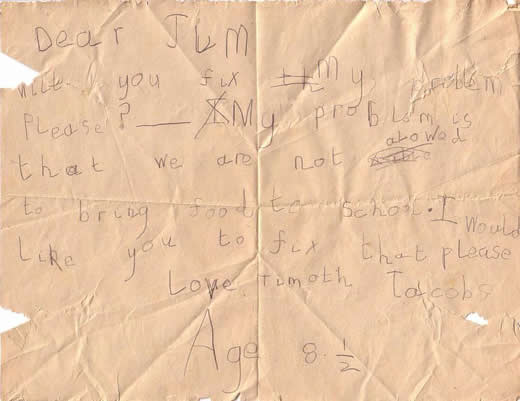 Dear JLM
will you fix My problem
Please? — My problem is
that we are not alowed
to bring food to school. I Would
Like you to fix that please
Love Timoth Jacobs
Age 8. 1/2